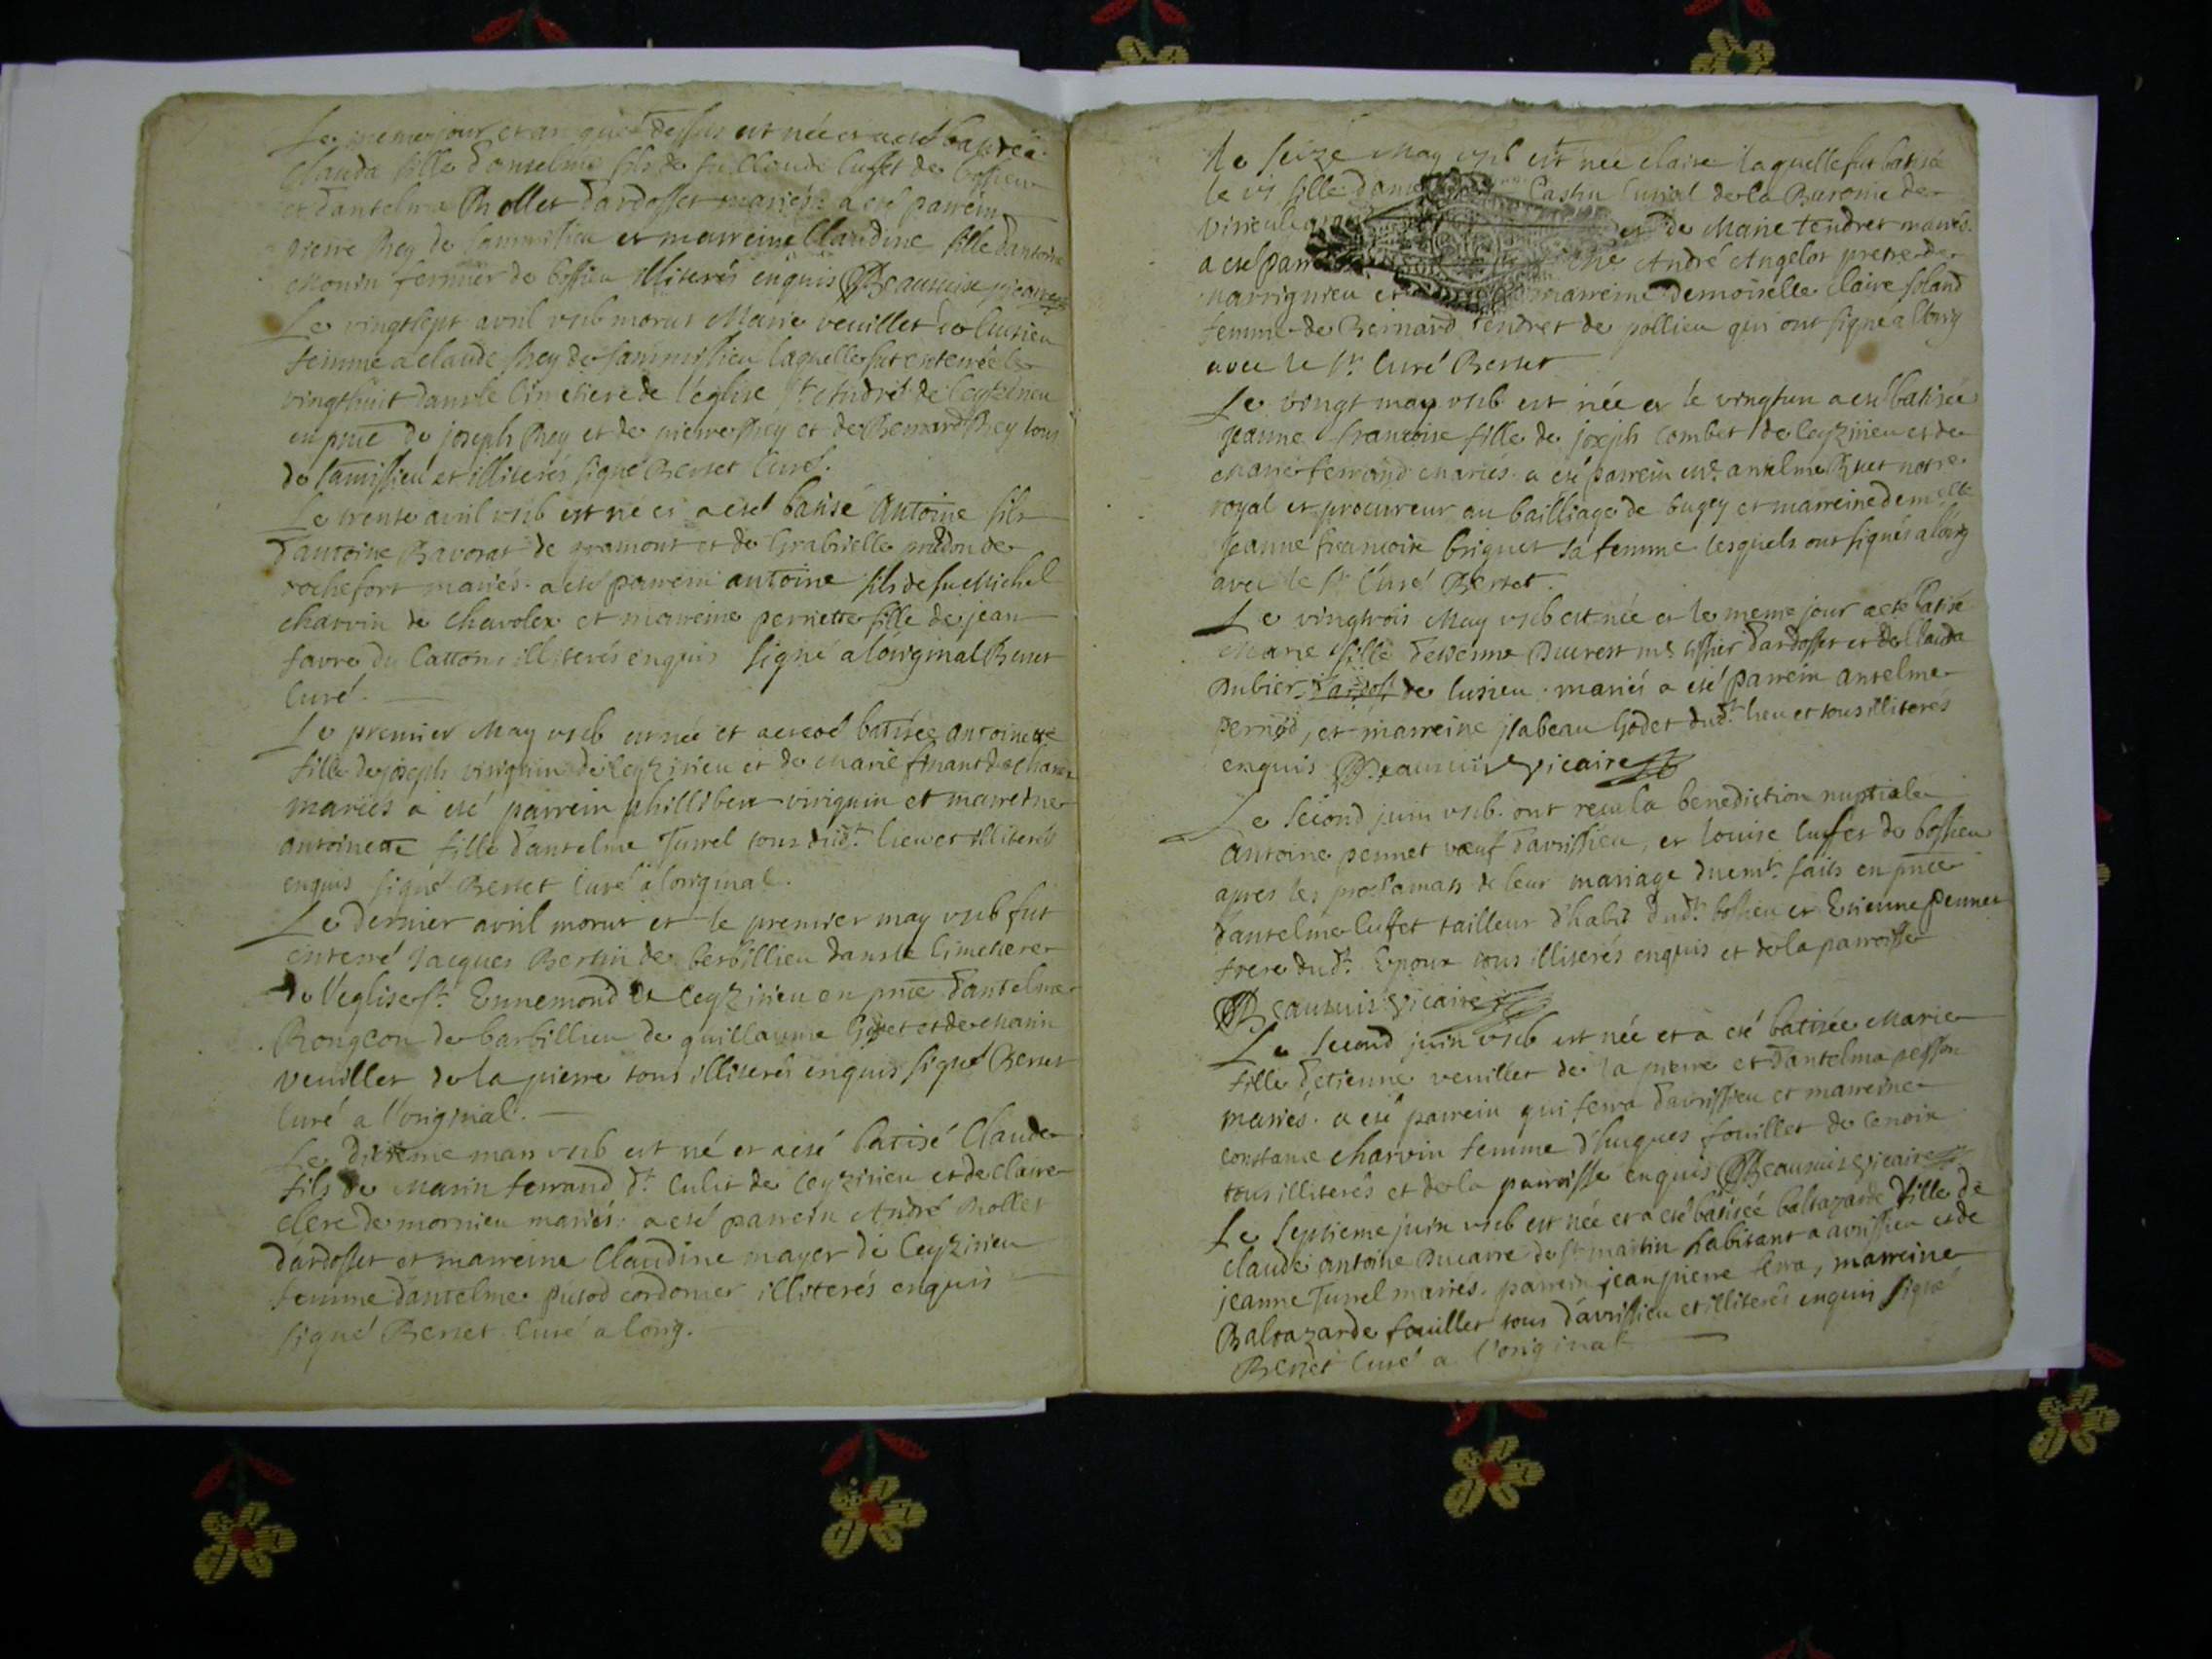 Le meme jour et an que dessus est née et a eté batisée
Clauda fille d'anselme fils de fu Claude luffet de bossieu
et d'antelma Rollet d'ardosset mariés a eté parrein
pierre Rey de Sammissieu et marreine Claudine fille d'antoine
Monin fermier de bossieu illiterés enquis Beaumis vicaire
Le vingt sept avril vsb morut Marie veuillet de lusieu
femme a claude Rey de sammissieu laquelle fut enterrée le
vingt huit dans le Cimetiere de l'eglise St André de Ceyzirieu
en pnce de joseph Rey et de pierre Rey et de Bernard Rey tous
de samissieu et illiterés signé Berret Curé.
Le trente avril vsb est né et a eté batisé Antoine fils
d'antoine Bavorat de gramont et de Gabrielle prudon de
rochefort mariés. a eté parrein antoine fils de fu Michel
charvin de Chavolex et marreine perriette fille de jean
favre du Catton illiterés enquis signé a l'original Berret
Curé.
Le premier May vsb est née et a eté batisée antoinette
fille de joseph viriguin de Ceyzirieu et de marie finant
mariés a eté parrein phillibert viriguin et marreine
antoinette fille d'antelme Turrel tous dudt. lieu et illiterés
enquis signé Berret Curé a loriginal.
Le dernier avril morut et le premier may vsb fut
enterré Jacques Bertin de berbillieu dans le Cimetiere
de l'eglise St. Ennemond de Ceyzirieu en pnce d'antelme
Rongeon de barbillieu de guillaume Godet et de Marin
veuillet de la pierre tous illiterés enquis signé Berret
Curé a l'original.
Le dixieme may vsb est né et a eté batisé Claude
fils de Marin ferrand dt. Culit de Ceyzirieu et de Claire
clerc de mornieu mariés. a eté parrein André Rollet
d'ardosset et marreine Claudine mayer de Ceyzirieu
femme d'antelme pusod cordonier illiterés enquis
signé Berret Curé a lorig.
Le seize May vsb est née claire laquelle fut batisée
le fille Castin Curial de la Baronie de
et de Marie tendret mariés.
a eté parrein André Angelot pretre de
marignieu et marreine demoiselle claire soland
femme de Bernard tendret de pollieu qui ont signé a l'orig
avec le Sr. Curé Berret
Le vingt may vsb est née et le vingt un a eté batisée
jeanne francoise fille de joseph Combet de Ceyzirieu et de
marie ferrand mariés. a eté parrein me. antelme Buet notre
royal et procureur au bailliage de bugey et marreine demelle
jeanne francoise briguet sa femme lesquels ont signés a lorig
avec le Sr Curé Berret.
Le vingtrois May vsb est née et le meme jour a eté batisée
Marie fille d'etienne Ducrest me tissier d'ardosset et de Clauda
Dubier de lusieu. mariés a eté parrein antelme
pernod, et marreine jsabeau Godet dudt. lieu et tous illiterés
enquis Beaumis vicaire
Le second juin vsb. ont recu la benediction nuptiale
Antoine pennet vœuf d'avrissieu, et louise luffet de bossieu
apres les proclamats de leur mariage duemt. faits en pnce
d'antelme luffet tailleur d'habit dudt. bossieu et Etienne pennet
frere dudt. Epoux tous illiterés enquis et de la parroisse
Beaumis vicaire
Le second juin vsb est née et a eté batisée Marie
fille d'etienne veuillet de la pierre et d'antelma
mariés. a eté parrein gui ferra d'avrissieu et marreine
constance charvin femme d'hugues fouillet de lenoir
tous illiterés et de la parroisse enquis Beaumis vicaire
Le septieme juin vsb est née et a eté batisée baltazarde fille de
claude antoine Ducarre de St martin habitant a avrissieu et de
jeanne Turrel mariés. parrein jean pierre ferra, marreine
Baltazarde fouillet tous d'avrissieu et illiterés enquis signé
Berret Curé a l'original